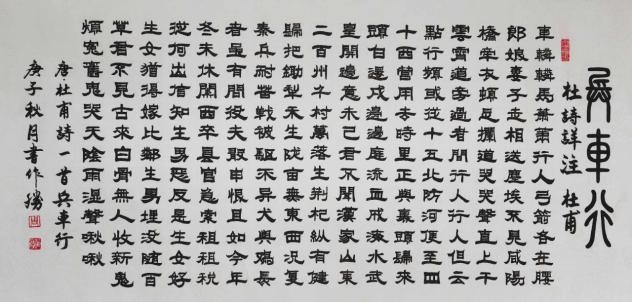 兵車行
杜詩詳注 杜甫
車轔轔馬蕭蕭行人弓箭各在腰
耶娘妻子走相送塵埃不見咸陽
橋牽衣頓足攔道哭哭聲直上干
雲霄道旁過者問行人行人但云
點行頻或從十五北防河便至四
十西營田去時里正與裹頭歸來
頭白還戍邊邊庭流血成海水武
皇開邊意未已君不聞漢家山東
二百州千村萬落生荊杞縱有健
婦把鋤犁禾生隴畝無東西況復
秦兵耐苦戰被驅不異犬與雞長
者雖有問役夫敢申恨且如今年
冬未休關西卒縣官急索租租稅
從何出信知生男惡反是生女好
生女猶得嫁比鄰生男埋沒隨百
草君不見古來白骨無人收新鬼
煩冤舊鬼哭天陰雨濕聲啾啾
唐杜甫詩一首兵車行
庚子秋月書作勝